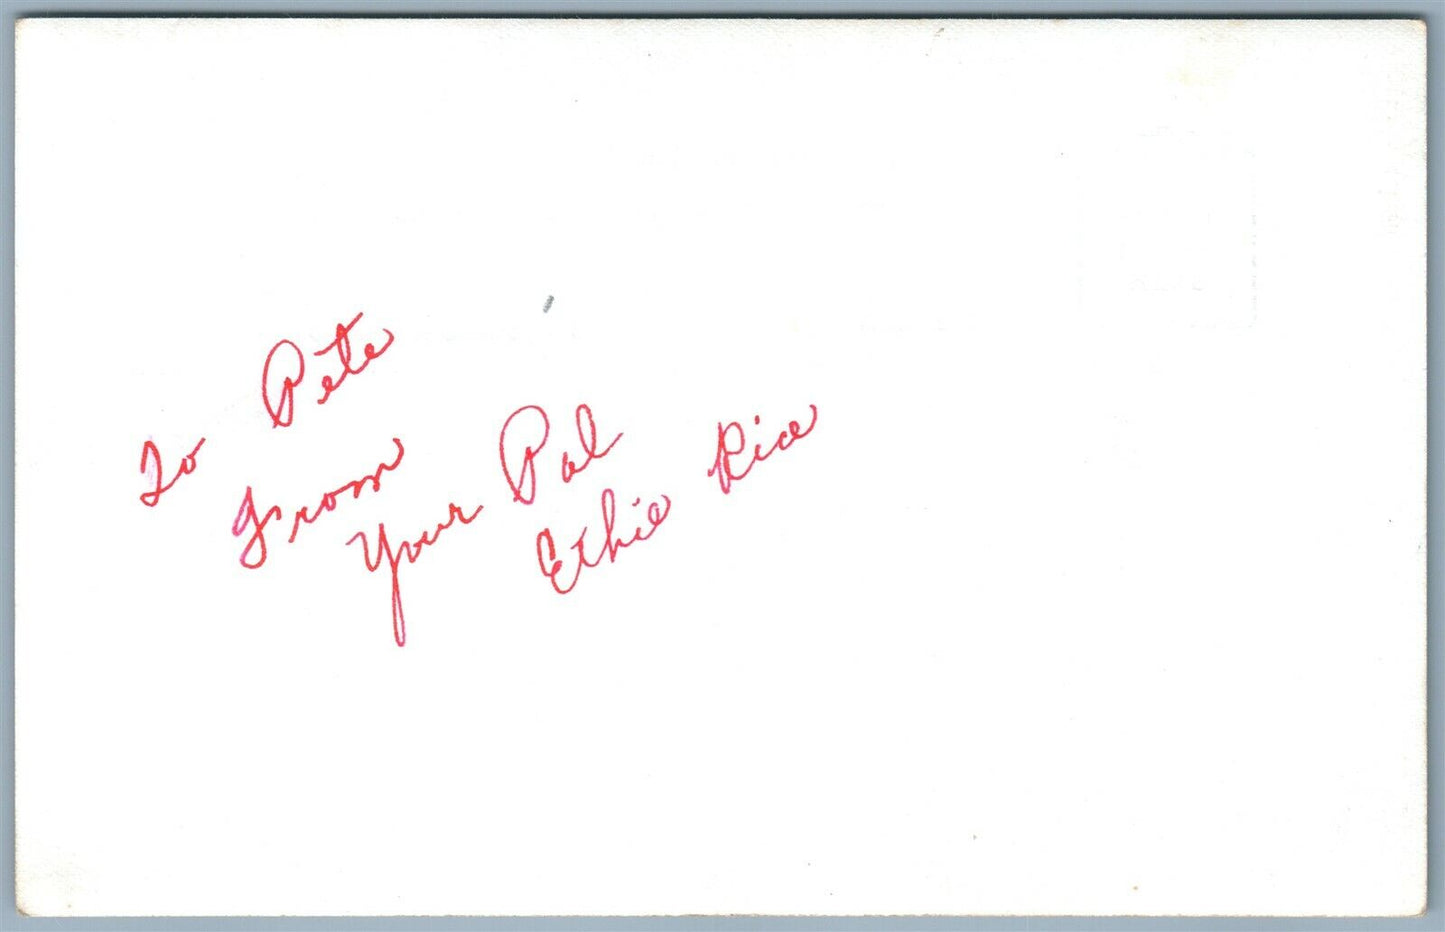 To Pete
From
Your Pal
Ethie Rice